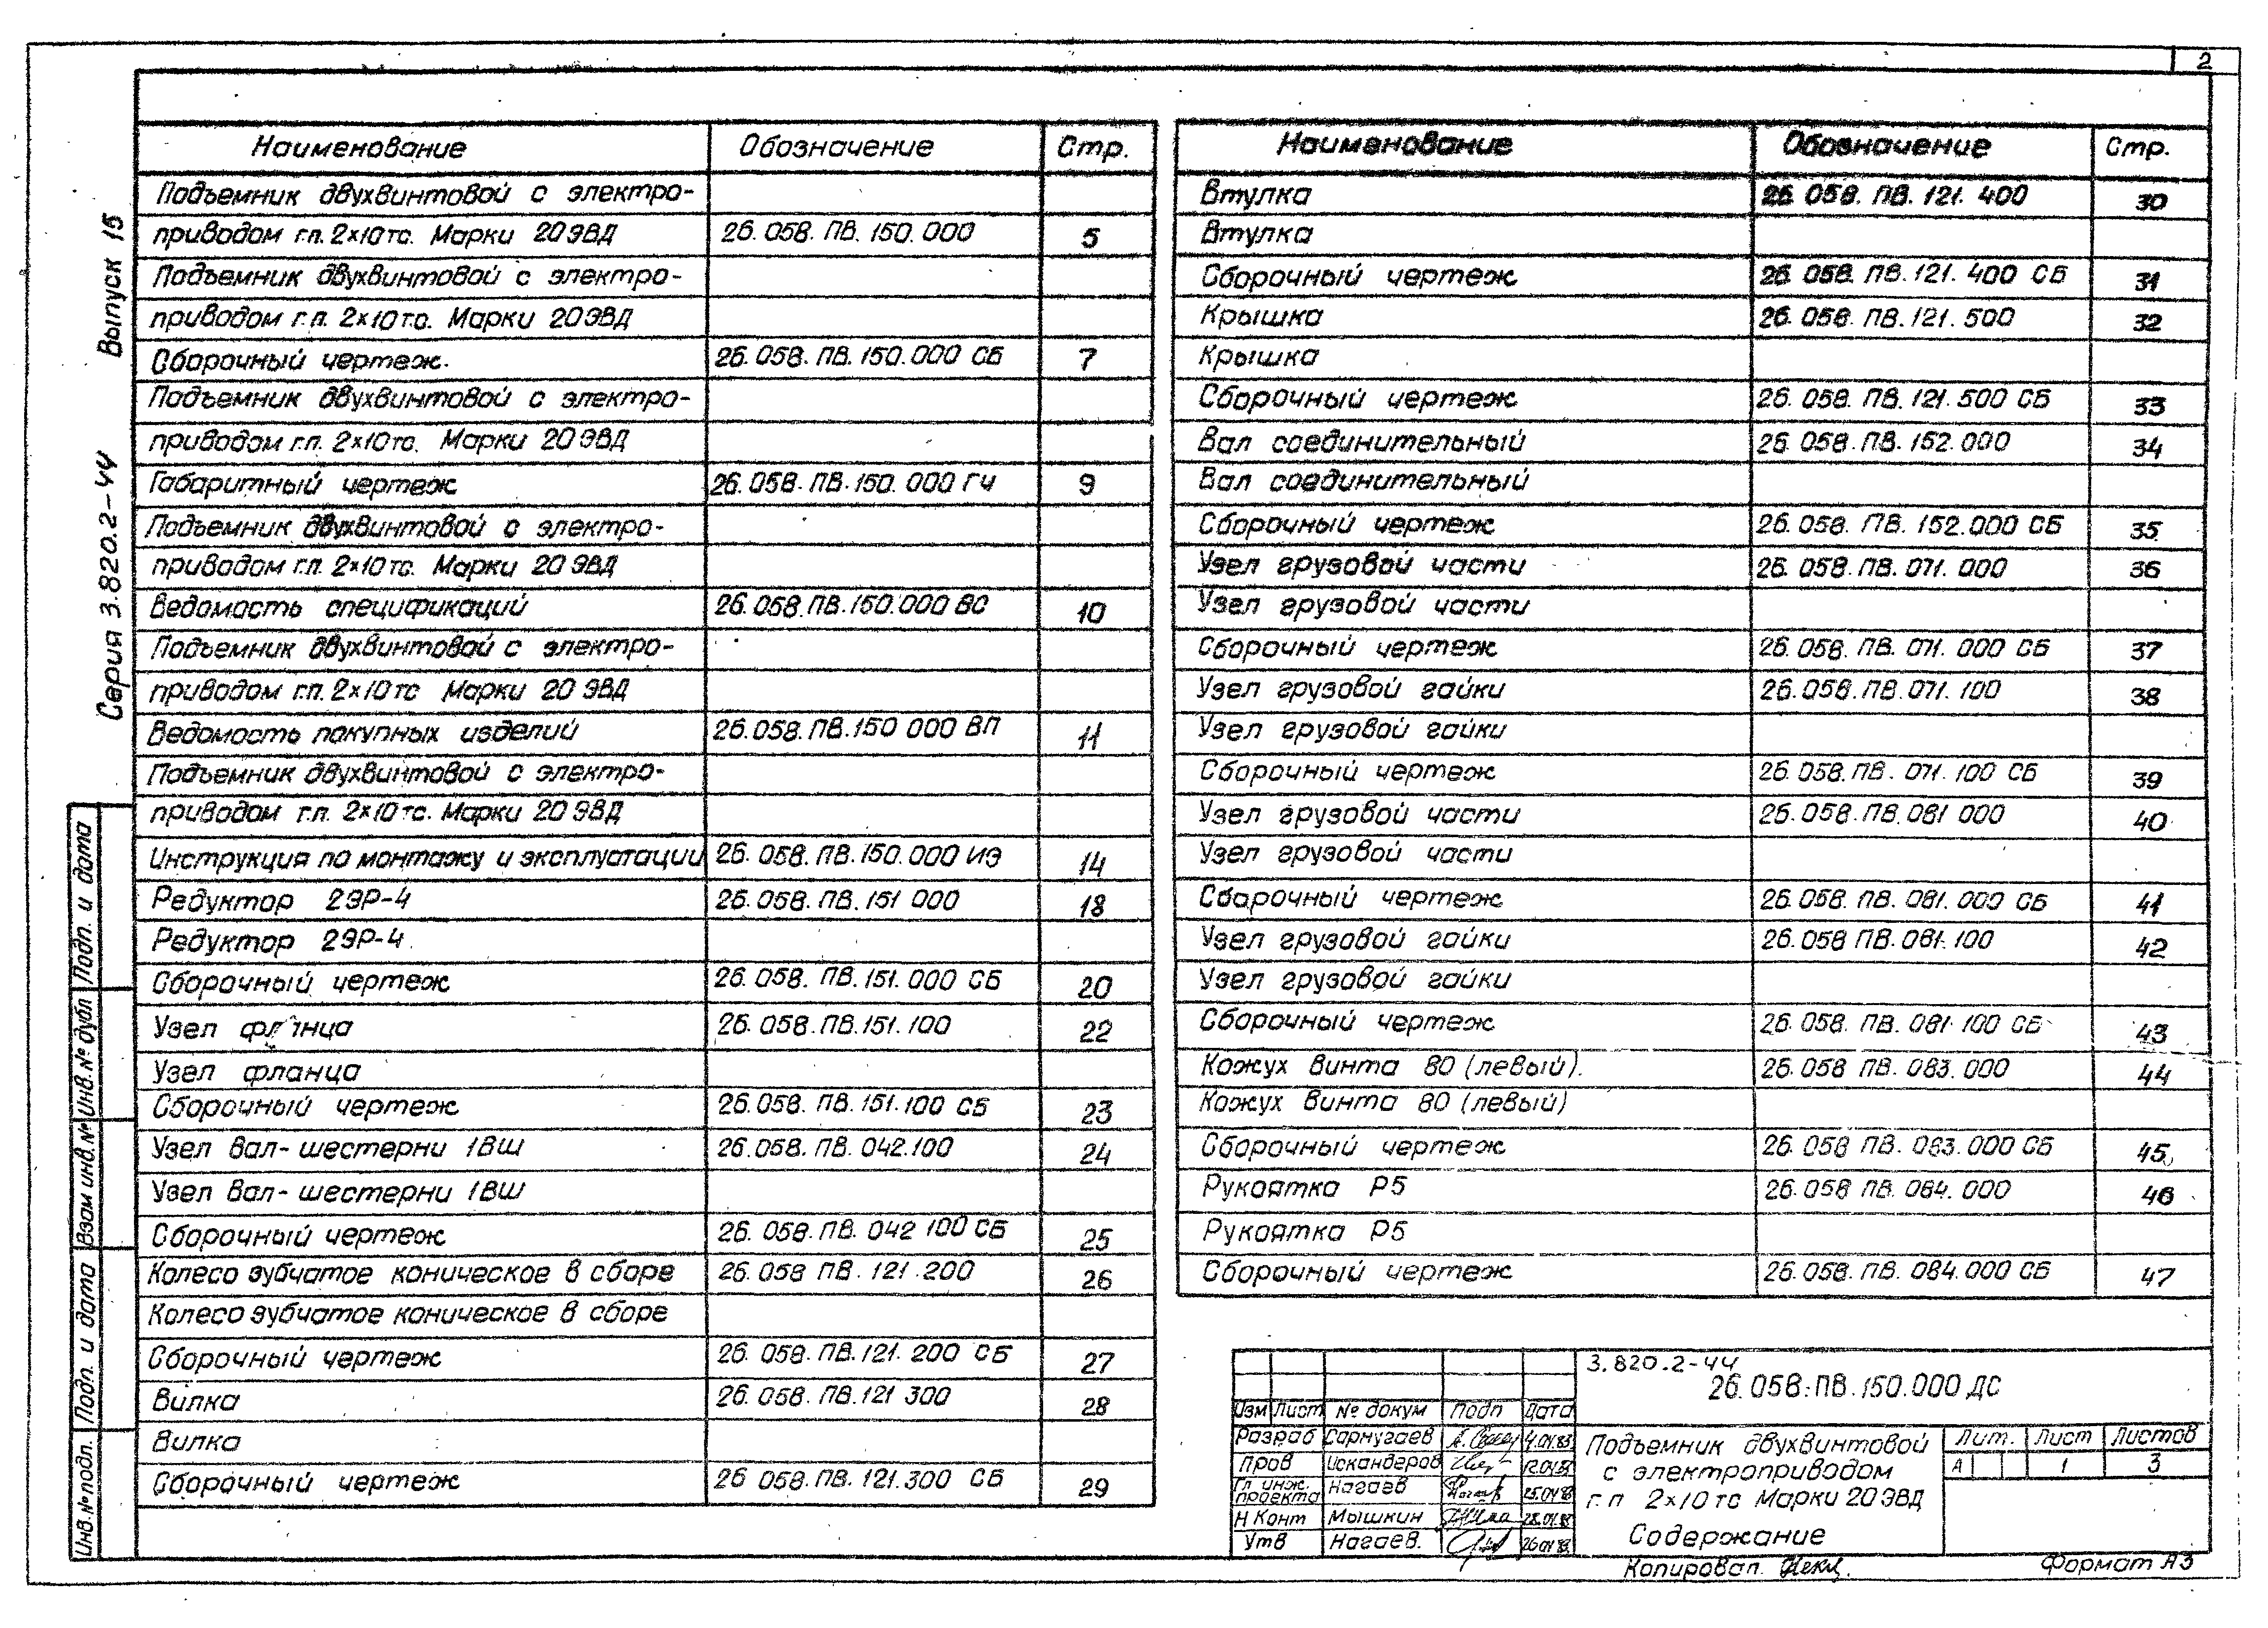 2
Серия 3.820.2-44 Выпуск 15
Наименование Обозначение Стр.
Подъемник двухвинтовой с электро-
приводом г.п. 2×10тс. Марки 20ЭВД 26.058.ПВ.150.000 5
Подъемник двухвинтовой с электро-
приводом г.п. 2×10т.с. Марки 20ЭВД
Сборочный чертеж. 26.058.ПВ.150.000 СБ 7
Подъемник двухвинтовой с электро-
приводом г.п. 2×10тс. Марки 20ЭВД
Габаритный чертеж 26.058.ПВ.150.000 ГЧ 9
Подъемник двухвинтовой с электро-
приводом г.п. 2×10тс. Марки 20ЭВД
Ведомость спецификаций 26.058.ПВ.150.000 ВС 10
Подъемник двухвинтовой с электро-
приводом г.п. 2×10тс Марки 20ЭВД
Ведомость покупных изделий 26.058.ПВ.150 000 ВП 11
Подъемник двухвинтовой с электро-
приводом г.п. 2×10тс. Марки 20ЭВД
Инструкция по монтажу и эксплуатации 26.058.ПВ.150.000 ИЭ 14
Редуктор 2ЭР-4 26.058.ПВ.151 000 18
Редуктор 2ЭР-4
Сборочный чертеж 26.058.ПВ.151.000 СБ 20
Узел фланца 26.058.ПВ.151.100 22
Узел фланца
Сборочный чертеж 26.058.ПВ.151.100 СБ 23
Узел вал-шестерни 1ВШ 26.058.ПВ.042.100 24
Узел вал-шестерни 1ВШ
Сборочный чертеж 26.058.ПВ.042 100 СБ 25
Колесо зубчатое коническое в сборе 26.058 ПВ.121.200 26
Колесо зубчатое коническое в сборе
Сборочный чертеж 26.058.ПВ.121.200 СБ 27
Вилка 26.058.ПВ.121 300 28
Вилка
Сборочный чертеж 26 058.ПВ.121.300 СБ 29
Наименование Обозначение Стр.
Втулка 26.058.ПВ.121.400 30
Втулка
Сборочный чертеж 26.058.ПВ.121.400 СБ 31
Крышка 26.058.ПВ.121.500 32
Крышка
Сборочный чертеж 26.058.ПВ.121.500 СБ 33
Вал соединительный 26.058.ПВ.152.000 34
Вал соединительный
Сборочный чертеж 26.058.ПВ.152.000 СБ 35
Узел грузовой части 26.058.ПВ.071.000 36
Узел грузовой части
Сборочный чертеж 26.058.ПВ.071.000 СБ 37
Узел грузовой гайки 26.058.ПВ.071.100 38
Узел грузовой гайки
Сборочный чертеж 26.058.ПВ.071.100 СБ 39
Узел грузовой части 26.058.ПВ.081 000 40
Узел грузовой части
Сборочный чертеж 26.058.ПВ.081.000 СБ 41
Узел грузовой гайки 26.058 ПВ.081.100 42
Узел грузовой гайки
Сборочный чертеж 26.058.ПВ.081 100 СБ 43
Кожух винта 80 (левый). 26.058 ПВ.083.000 44
Кожух винта 80 (левый)
Сборочный чертеж 26.058 ПВ.083.000 СБ 45
Рукоятка Р5 26.058 ПВ.084.000 46
Рукоятка Р5
Сборочный чертеж 26.058.ПВ.084.000 СБ 47
Подп. и дата
Инв.№ дубл
Взам инв.№
Подп. и дата
Инв.№ подл.
3.820.2-44
26.058.ПВ.150.000 ДС
Изм Лист № докум Подп Дата
Разраб Сарнугаев 4.01.83
Пров Искандеров 12.01.83
Гл инж. проекта Нагаев 25.01.83
Н Конт Мышкин 25.01.83
Утв Нагаев. 26 01 83
Подъемник двухвинтовой
с электроприводом
г.п 2×10тс Марки 20ЭВД
Содержание
Лит. Лист Листов
А 1 3
Копировал.
Формат А3